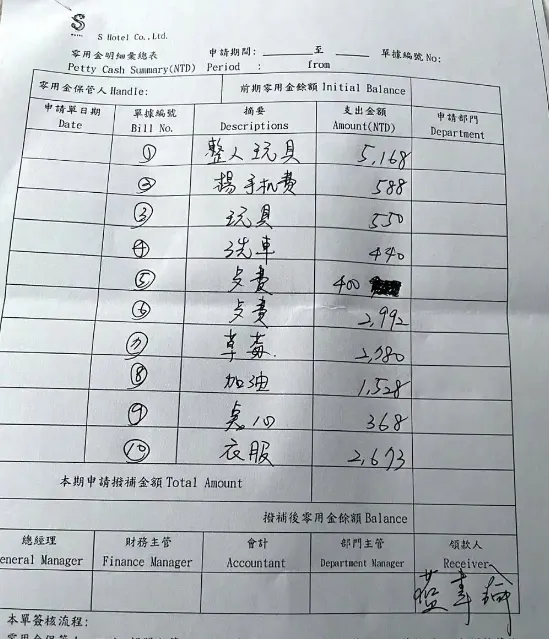 S
S Hotel Co., Ltd.
零用金明細彙總表 申請期間: 至 單據編號 No:
Petty Cash Summary(NTD) Period : from
零用金保管人 Handle: 前期零用金餘額 Initial Balance
申請單日期 單據編號 摘要 支出金額 申請部門
Date Bill No. Descriptions Amount(NTD) Department
① 整人玩具 5,168
② 楊手机費 588
③ 玩具 550
④ 洗車 440
⑤ 400
⑥ 2,992
⑦ 草莓
⑧ 加油 1,528
⑨ 点心 368
⑩ 衣服 2,673
本期申請撥補金額 Total Amount
撥補後零用金餘額 Balance
總經理 財務主管 會計 部門主管 領款人
eneral Manager Finance Manager Accountant Department Manager Receiver
本單簽核流程: